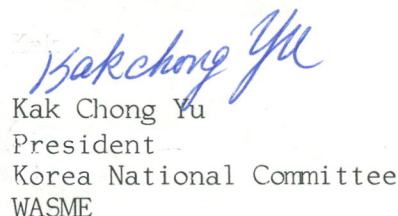 Kakchong Yu
Kak Chong Yu
President
Korea National Committee
WASME